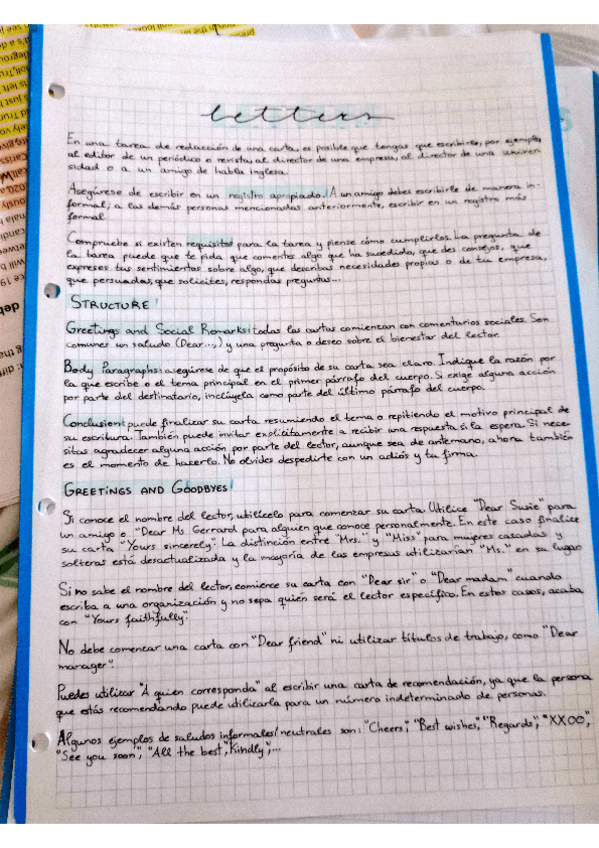 letters
En una tarea de redacción de una carta, es posible que tengas que escribirle, por ejemplo,
al editor de un periódico o revista, al director de una empresa, al director de una univer-
sidad o a un amigo de habla inglesa.
Asegúrese de escribir en un registro apropiado. A un amigo debes escribirle de manera in-
formal; a las demás personas mencionadas anteriormente, escribir en un registro más
formal.
Compruebe si existen requisitos para la tarea y piense cómo cumplirlos. La pregunta de
la tarea puede que te pida que comentes algo que ha sucedido, que des consejos, que
expreses tus sentimientos sobre algo, que describas necesidades propias o de tu empresa,
que persuadas, que solicites, respondas preguntas...
STRUCTURE:
Greetings and Social Remarks: todas las cartas comienzan con comentarios sociales. Son
comunes un saludo (Dear...,) y una pregunta o deseo sobre el bienestar del lector.
Body Paragraphs: asegúrese de que el propósito de su carta sea claro. Indique la razón por
la que escribe o el tema principal en el primer párrafo del cuerpo. Si exige alguna acción
por parte del destinatario, inclúyela como parte del último párrafo del cuerpo.
Conclusion: puede finalizar su carta resumiendo el tema o repitiendo el motivo principal de
su escritura. También puede invitar explícitamente a recibir una respuesta si la espera. Si nece-
sitas agradecer alguna acción por parte del lector, aunque sea de antemano, ahora también
es el momento de hacerlo. No olvides despedirte con un adiós y tu firma.
GREETINGS AND GOODBYES:
Si conoce el nombre del lector, utilícelo para comenzar su carta. Utilice "Dear Susie" para
un amigo o "Dear Ms Gerrard para alguien que conoce personalmente. En este caso finalice
su carta "Yours sincerely". La distinción entre "Mrs." y "Miss" para mujeres casadas y
solteras está desactualizada y la mayoría de las empresas utilizarían "Ms." en su lugar
Si no sabe el nombre del lector, comience su carta con "Dear sir" o "Dear madam" cuando
escriba a una organización y no sepa quién será el lector específico. En estos casos, acaba
con "Yours faithfully".
No debe comenzar una carta con "Dear friend" ni utilizar títulos de trabajo, como "Dear
manager".
Puedes utilizar "A quien corresponda" al escribir una carta de recomendación, ya que la persona
que estás recomendando puede utilizarla para un número indeterminado de personas.
Algunos ejemplos de saludos informales/neutrales son: "Cheers", "Best wishes", "Regards", "XXOO",
"See you soon", "All the best", Kindly",...